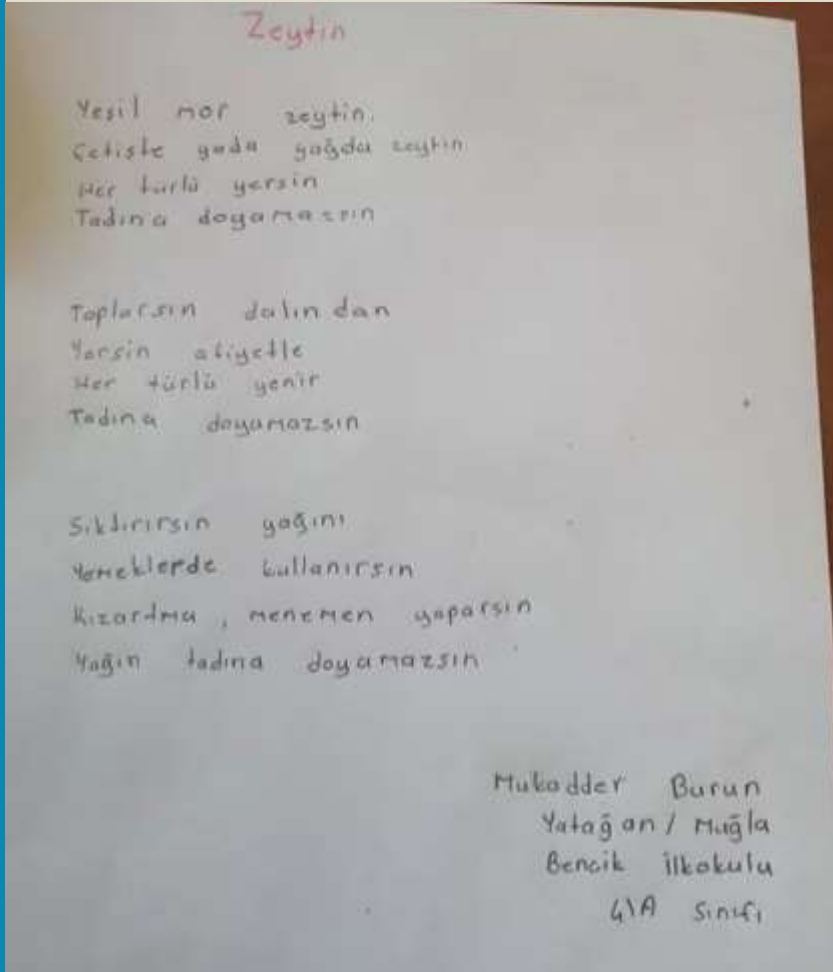 Zeytin
Yeşil mor zeytin.
Çetişte yada yağda zeytin
Her türlü yersin
Tadına doyamazsın
Toplarsın dalından
Yersin afiyetle
Her türlü yenir
Tadına doyamazsın
Sıktırırsın yağını
Yemeklerde kullanırsın
Kızartma, menemen yaparsın
Yağın tadına doyamazsın
Mukadder Burun
Yatağan / Muğla
Bencik İlkokulu
4\A Sınıfı